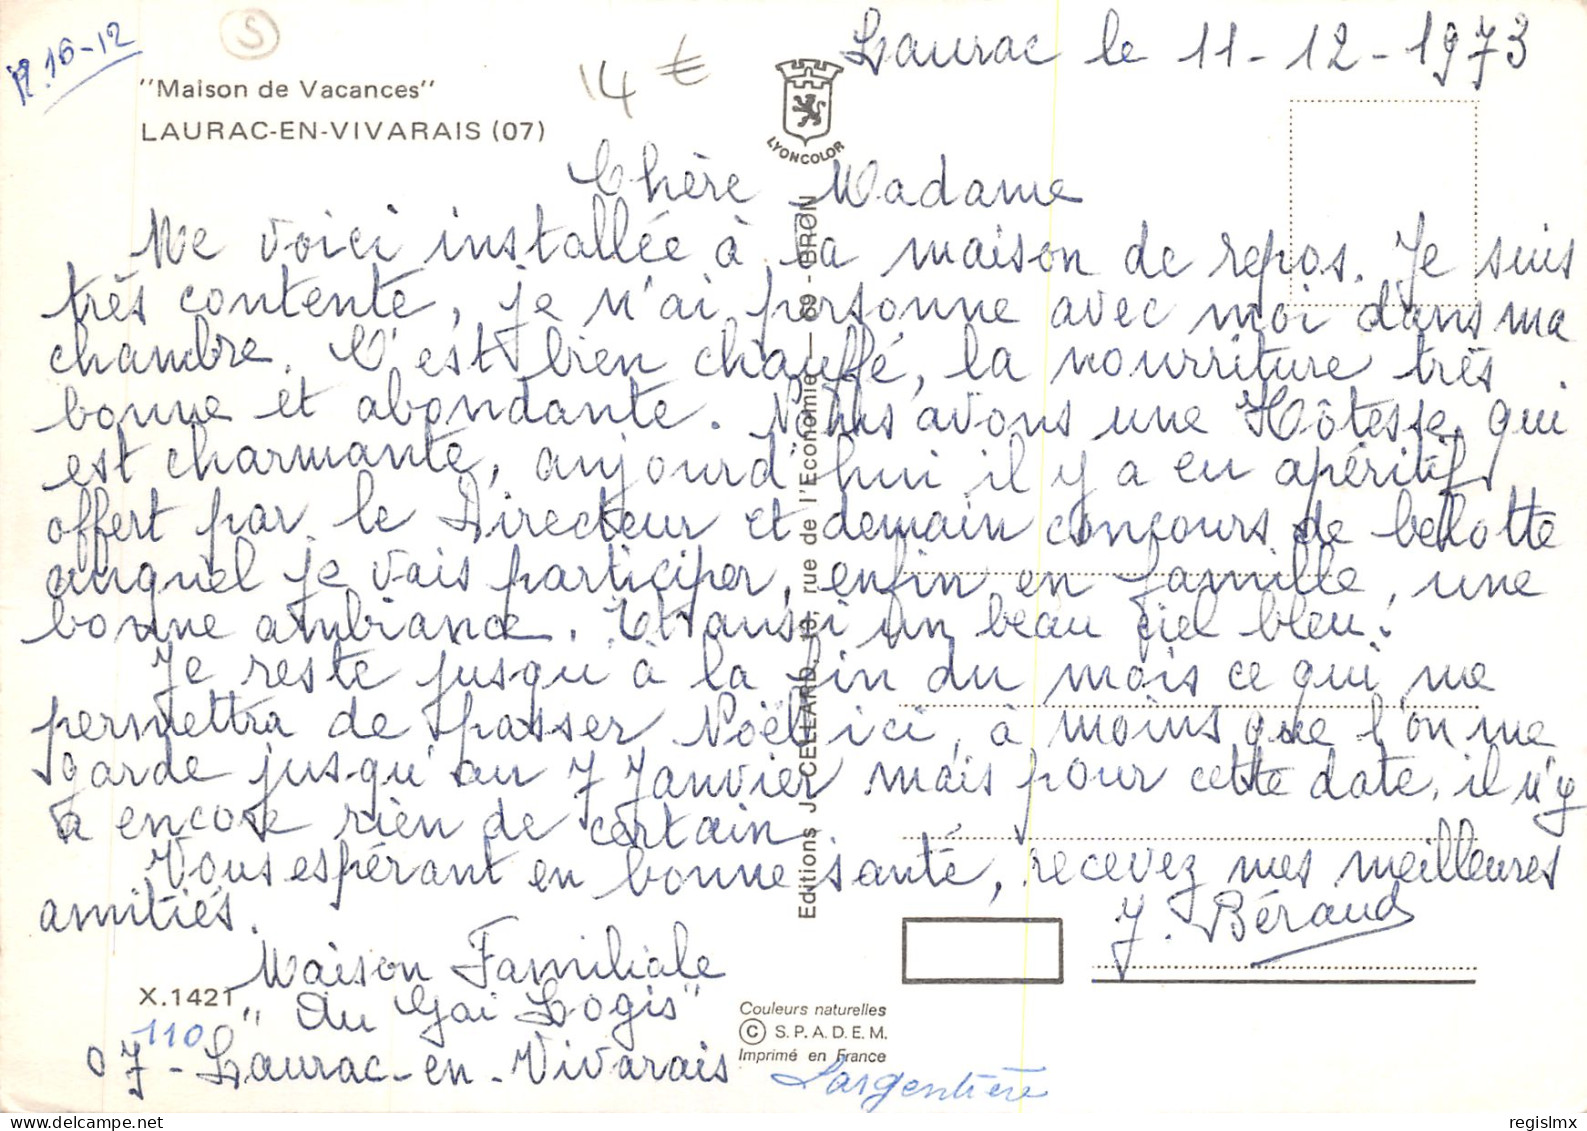 R. 16-12
S
14 €
Laurac le 11-12-1973
"Maison de Vacances"
LAURAC-EN-VIVARAIS (07)
LYONCOLOR
Chère Madame
Me voici installée à la maison de repos. Je suis
très contente, je n'ai personne avec moi dans ma
chambre. C'est bien chauffé, la nourriture très
bonne et abondante. Nous avons une Hôtesse qui
est charmante, aujourd'hui il y a eu apéritif
offert par le Directeur et demain concours de belotte
auquel je vais participer, enfin en famille, une
bonne ambiance. Et aussi un beau ciel bleu.
Je reste jusqu'à la fin du mois ce qui me
permettra de passer Noël ici, à moins que l'on me
garde jusqu'au 7 Janvier mais pour cette date, il n'y
a encore rien de certain.
Vous espérant en bonne santé, recevez mes meilleures
amitiés.
J. Béraud
Maison Familiale
"Au Gai Logis"
07 - Laurac-en-Vivarais
X.1421
110
Largentière
Editions J. CELLARD, 10, rue de l'Economie — 69 - BRON
Couleurs naturelles
© S.P.A.D.E.M.
Imprimé en France
regislmx